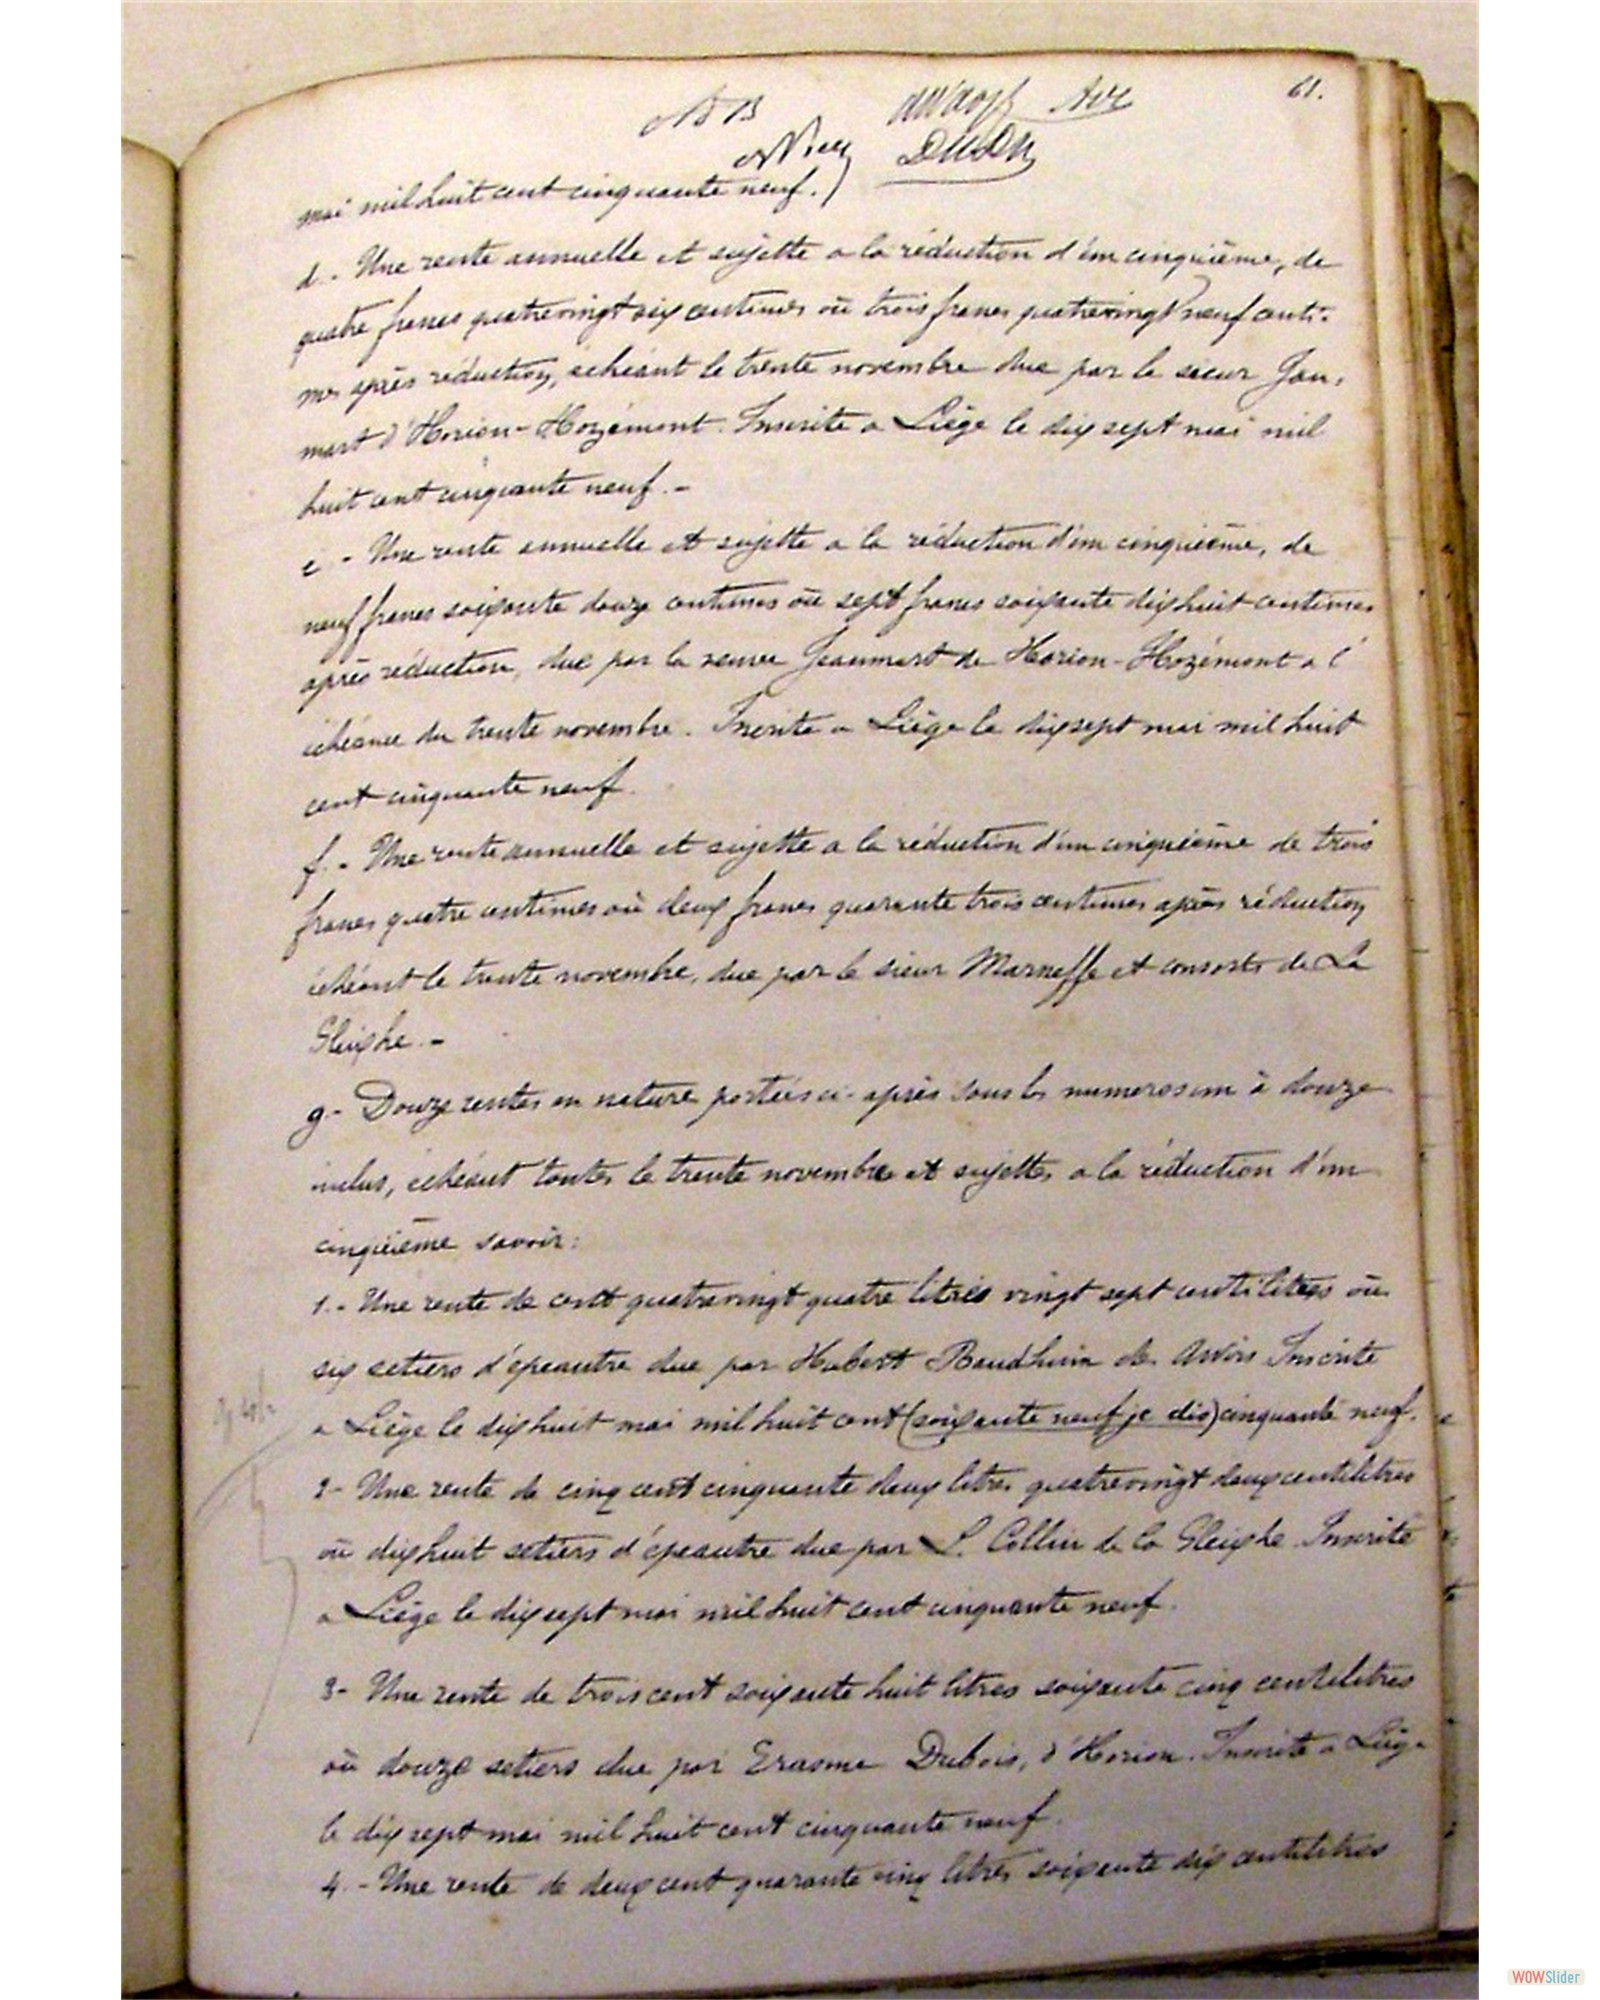 61.
mai mil huit cent cinquante neuf.
d. - Une rente annuelle et sujette a la réduction d'un cinquième, de
quatre francs quatrevingt six centimes où trois francs quatrevingt neuf centi-
mes après réduction, échéant le trente novembre due par le sieur Jan,
mart d'Horion-Hozémont. Inscrite a Liège le dix sept mai mil
huit cent cinquante neuf. -
e - Une rente annuelle et sujette a la réduction d'un cinquième, de
neuf francs soixante douze centimes où sept francs soixante dix huit centimes
après réduction, due par la veuve Jeanmart de Horion-Hozémont a l'
échéance du trente novembre. Inscrite a Liège le dix sept mai mil huit
cent cinquante neuf.
f. - Une rente annuelle et sujette a la réduction d'un cinquième de trois
francs quatre centimes où deux francs quarante trois centimes après réduction
échéant le trente novembre, due par le sieur Marneffe et consorts de La
Gleixhe. -
g - Douze rentes en nature portées ci-après sous les numeros un à douze
inclus, échéant toutes le trente novembre et sujettes a la réduction d'un
cinquième savoir:
1. - Une rente de cent quatrevingt quatre litres vingt sept centilitres où
six setiers d'épeautre due par Hubert Baudhuin de Awirs Inscrite
a Liège le dix huit mai mil huit cent (soixante neuf je dis) cinquante neuf.
2 - Une rente de cinq cent cinquante deux litres quatrevingt deux centilitres
où dix huit setiers d'épeautre due par L. Collin de la Gleixhe. Inscrite
a Liège le dix sept mai mil huit cent cinquante neuf.
3 - Une rente de trois cent soixante huit litres soixante cinq centilitres
où douze setiers due par Erasme Dubois, d'Horion. Inscrite a Liège
le dix sept mai mil huit cent cinquante neuf.
4. - Une rente de deux cent quarante cinq litres soixante dix centilitres
WOWSlider